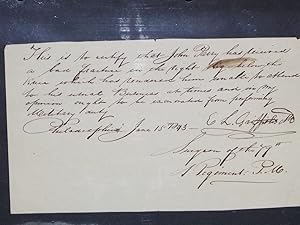 This is to certify that John Perry has received
a bad fracture in the Right
since which has rendered him unable to attend
to his usual Business at times and in my
opinion ought to be exonerated from performing
Military duty
Philadelphia June 15th
C L
Surgeon of the 79th
Regiment P. M.